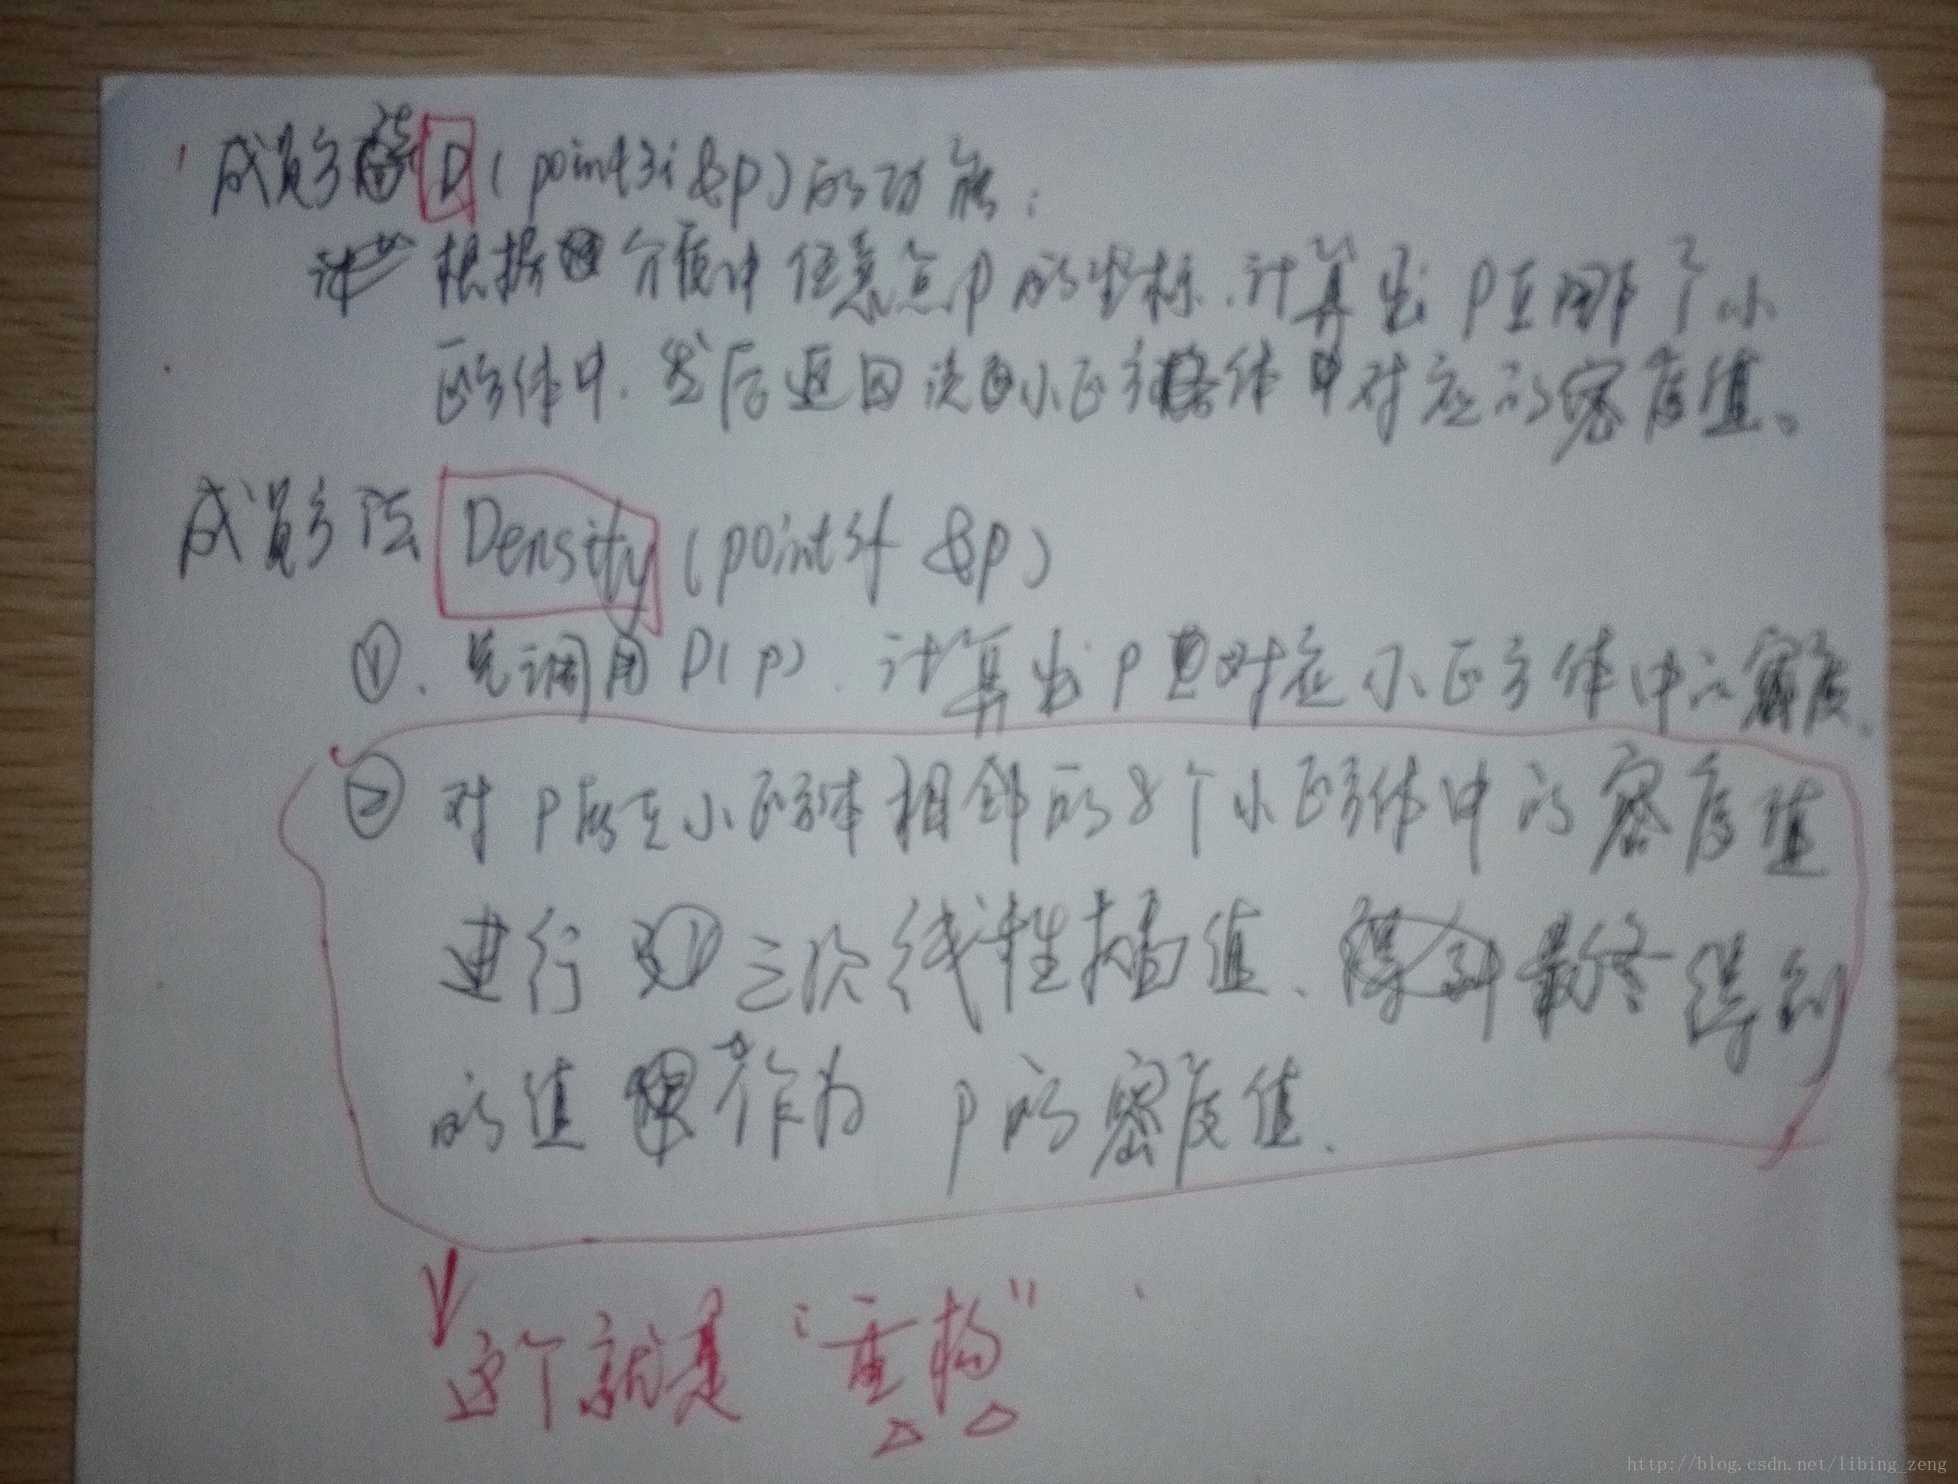 成员方法D(point3i &p)的功能:
根据介质中任意点p的坐标,计算出P在哪个小
正方体中,然后返回该小正方体中对应的密度值。
成员方法 Density(point3f &p)
①. 先调用D(p),计算出P对应小正方体中的密度.
② 对P所在小正方体相邻的8个小正方体中的密度值
进行三次线性插值、最终得到
的值作为P的密度值.
这个就是“重构”
http://blog.csdn.net/libing_zeng